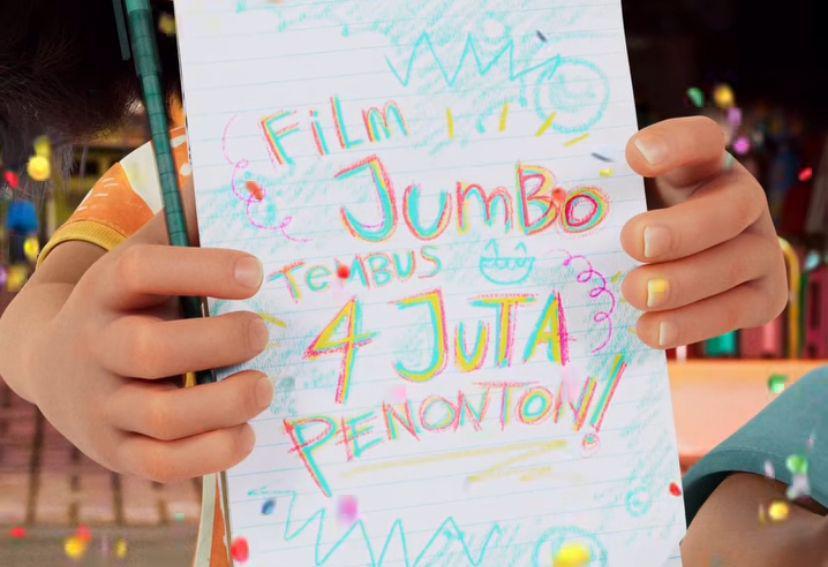 FiLm
JumBo
TeMBUS
4 JUTA
PENONTON!!